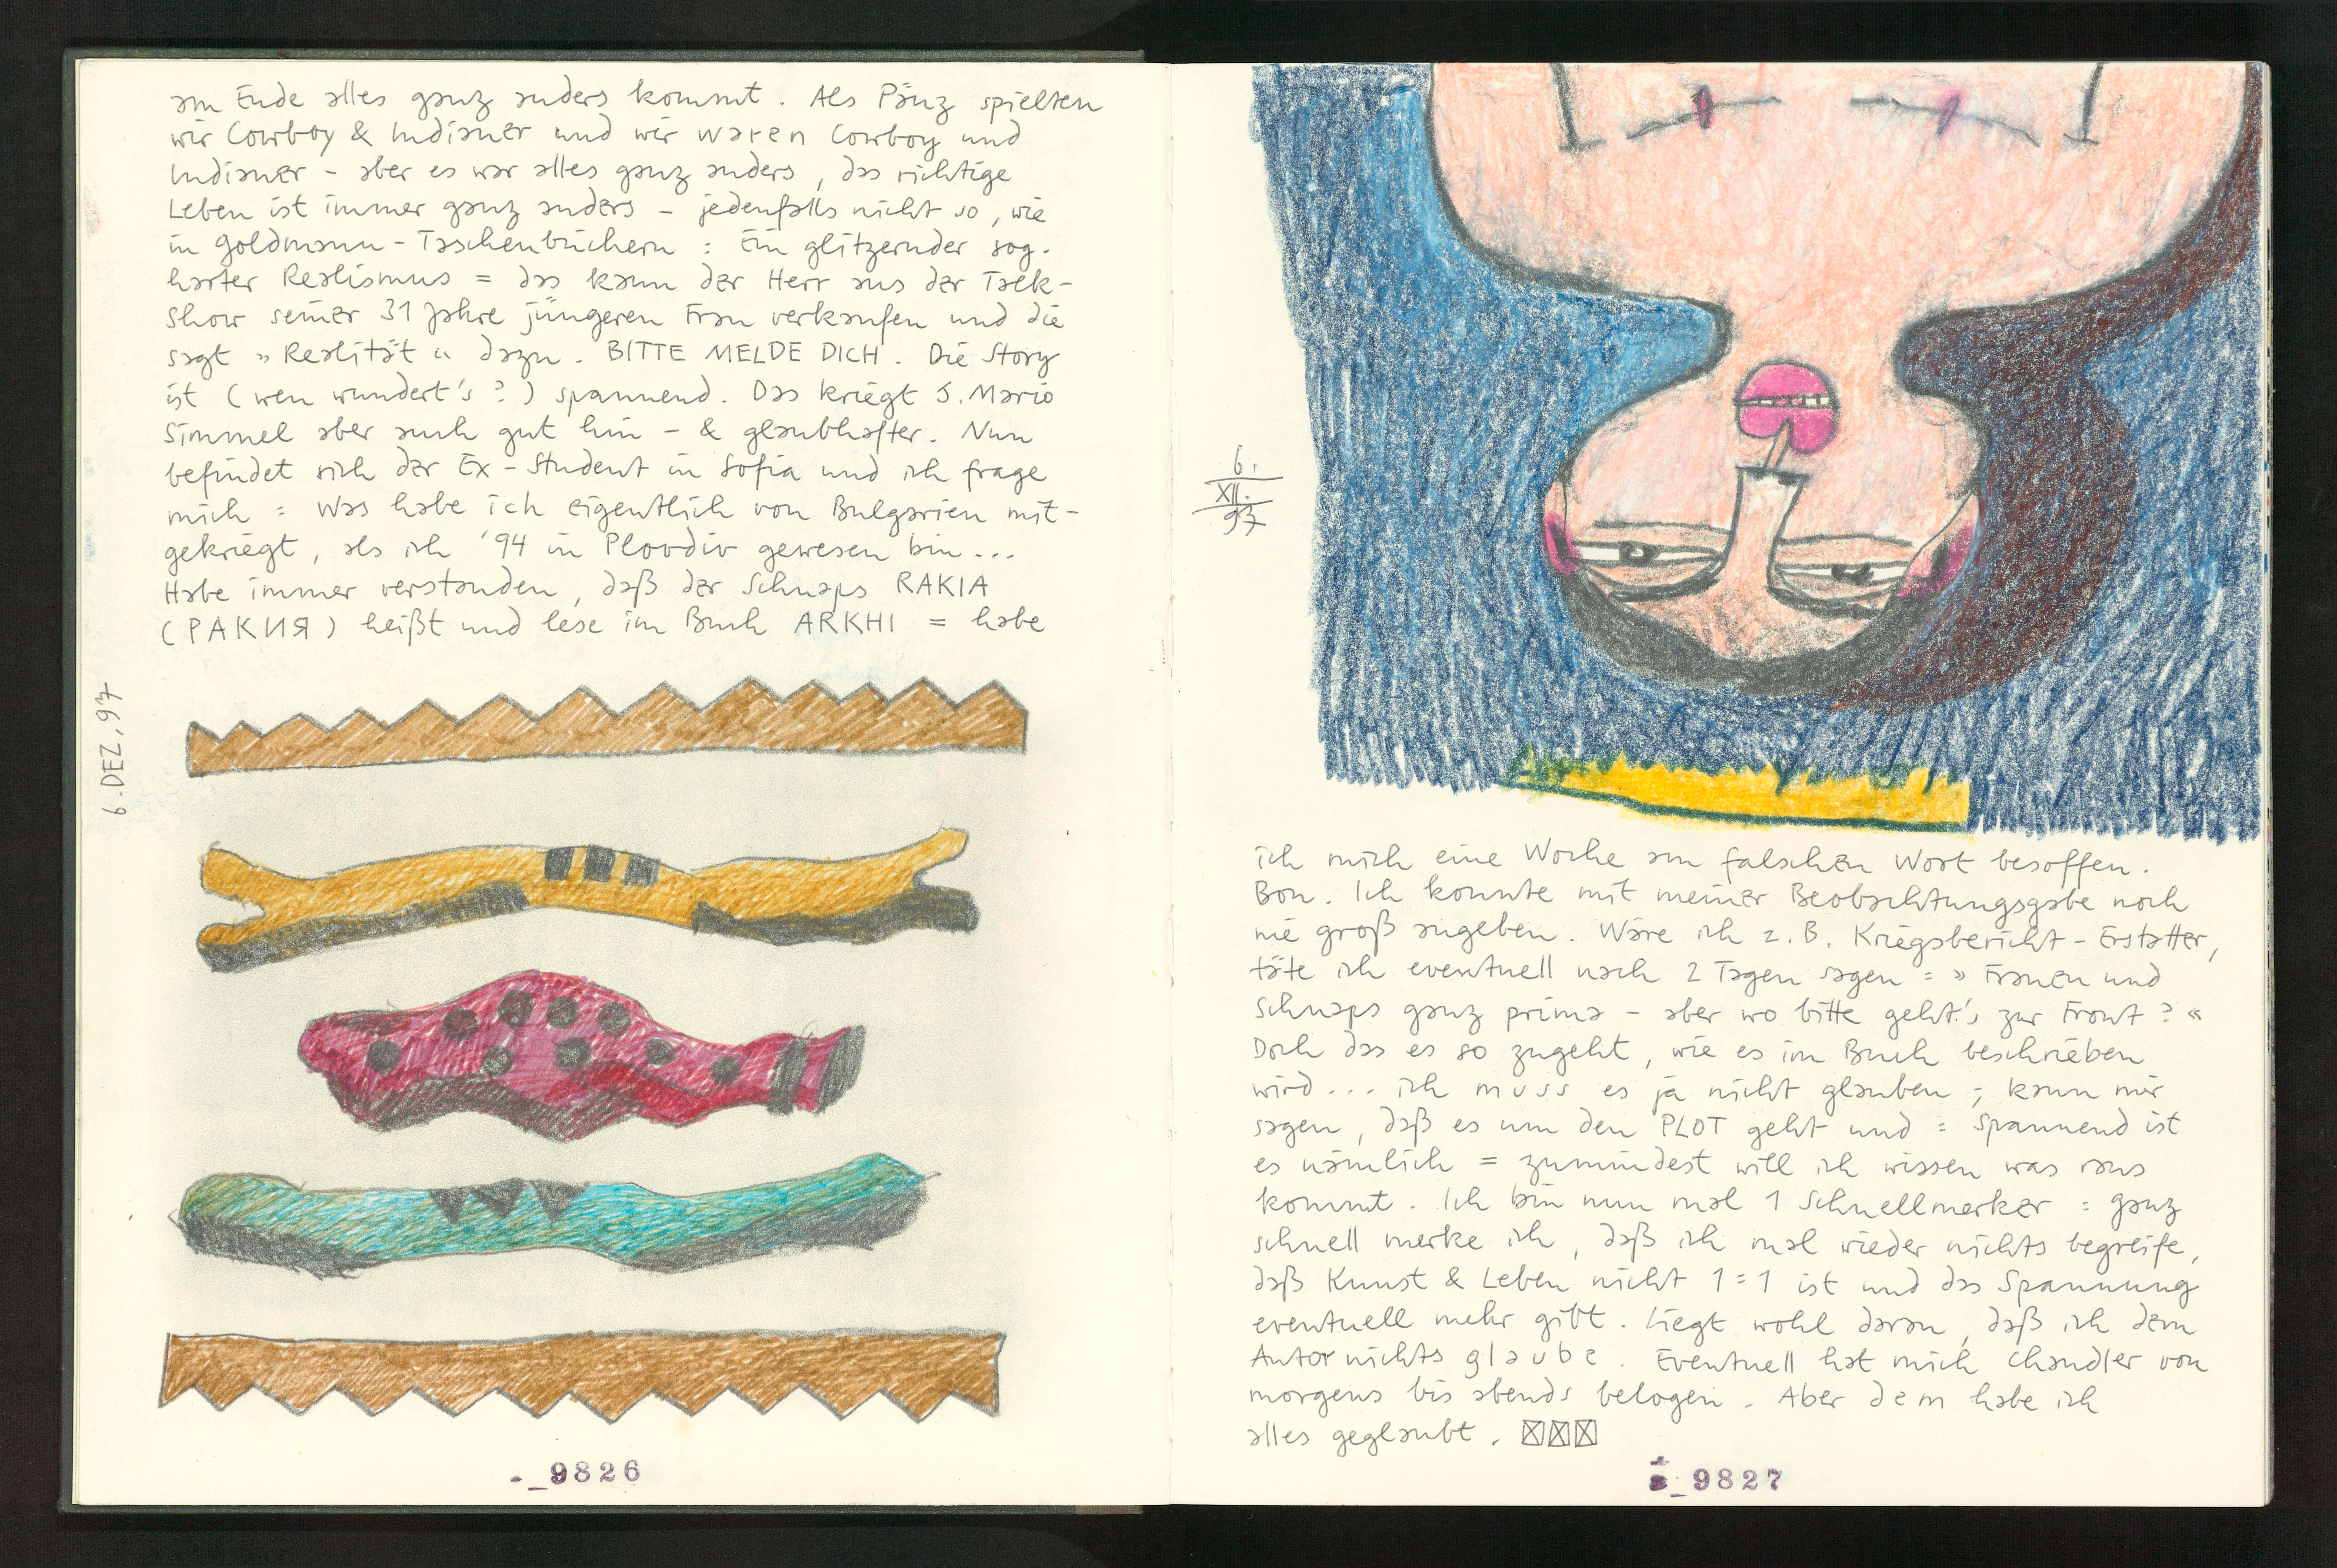 am Ende alles ganz anders kommt. Als Pänz spielten
wir Cowboy & Indianer und wir waren Cowboy und
Indianer – aber es war alles ganz anders, das richtige
Leben ist immer ganz anders – jedenfalls nicht so, wie
in Goldmann-Taschenbüchern : Ein glitzernder sog.
harter Realismus = das kann der Herr aus der Talk-
show seiner 31 Jahre jüngeren Frau verkaufen und die
sagt » Realität « dazu. BITTE MELDE DICH. Die Story
ist (wen wundert's?) spannend. Das kriegt J. Mario
Simmel aber auch gut hin – & glaubhafter. Nun
befindet sich der Ex-Student in Sofia und ich frage
mich : Was habe ich eigentlich von Bulgarien mit-
gekriegt, als ich '94 in Plovdiv gewesen bin...
Habe immer verstanden, daß der Schnaps RAKIA
(РАКИЯ) heißt und lese im Buch ARKHI = habe
6. DEZ, 97
_9826
6.
XII.
97
ich mich eine Woche am falschen Wort besoffen.
Bon. Ich konnte mit meiner Beobachtungsgabe noch
nie groß angeben. Wäre ich z. B. Kriegsbericht-Erstatter,
täte ich eventuell nach 2 Tagen sagen : » Frauen und
Schnaps ganz prima – aber wo bitte geht's zur Front ? «
Doch das es so zugeht, wie es im Buch beschrieben
wird... ich muss es ja nicht glauben ; kann mir
sagen, daß es um den PLOT geht und : spannend ist
es nämlich = zumindest will ich wissen was raus
kommt. Ich bin nun mal 1 Schnellmerker : ganz
schnell merke ich, daß ich mal wieder nichts begreife,
daß Kunst & Leben nicht 1:1 ist und das Spannung
eventuell mehr gibt. Liegt wohl daran, daß ich dem
Autor nichts glaube. Eventuell hat mich Chandler von
morgens bis abends belogen. Aber dem habe ich
alles geglaubt. ☒☒☒
_9827